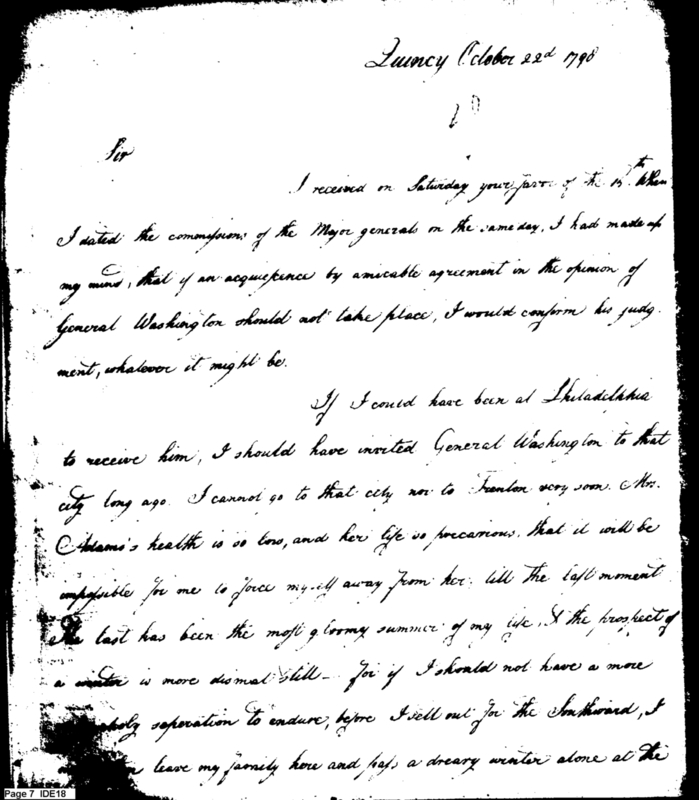 Quincy October 22d 1798
Sir
I received on Saturday your favor of the 15th. When
I dated the commissions of the Major generals on the same day, I had made up
my mind, that if an acquiescence by amicable agreement in the opinion of
General Washington should not take place, I would confirm his judg
ment, whatever it might be.
If I could have been at Philadelphia
to receive him, I should have invited General Washington to that
city long ago. I cannot go to that city nor to Trenton very soon. Mrs.
Adams's health is so low, and her life so precarious, that it will be
impossible for me to force myself away from her till the last moment
The last has been the most gloomy summer of my life, & the prospect of
a winter is more dismal still – for if I should not have a more
separation to endure, before I sett out for the Southward, I
leave my family here and pass a dreary winter alone at the
Page 7 IDE18